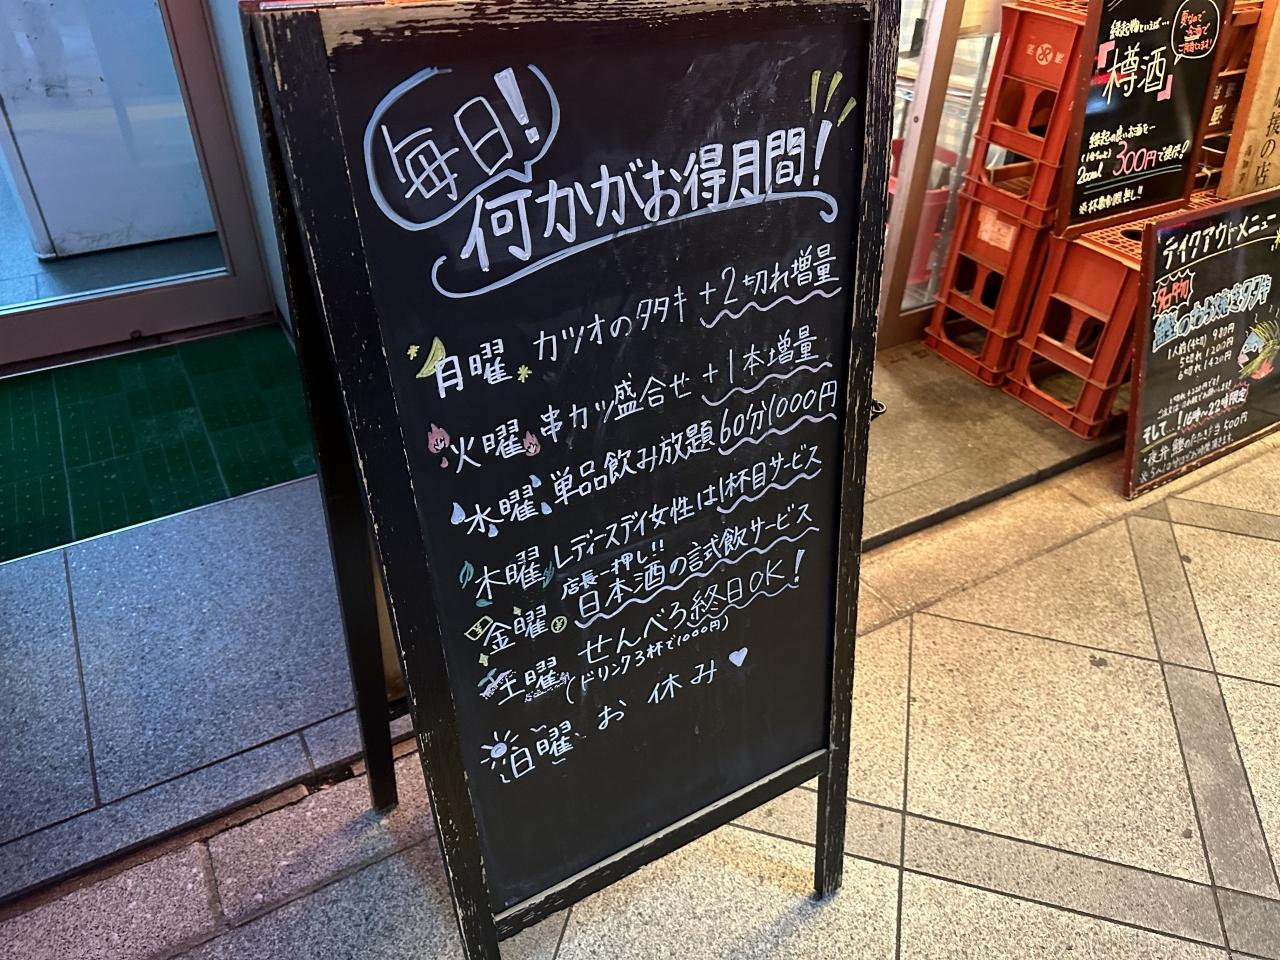 毎日!
何かがお得月間!
月曜 カツオのタタキ +2切れ増量
火曜 串カツ盛合せ +1本増量
水曜 単品飲み放題 60分1000円
木曜 レディースデイ女性は1杯目サービス
店長一押し!!
金曜 日本酒の試飲サービス
土曜 せんべろ終日OK!
(ドリンク3杯で1000円)
日曜 お休み♥
縁起物といえば…
樽酒
縁起の良いお酒を…
200ml 300円で提供!
※杯数制限無し!!
テイクアウトメニュー
1人前(4切) 980円
5切れ 1200円
6切れ 1420円
そして…16時~22時限定